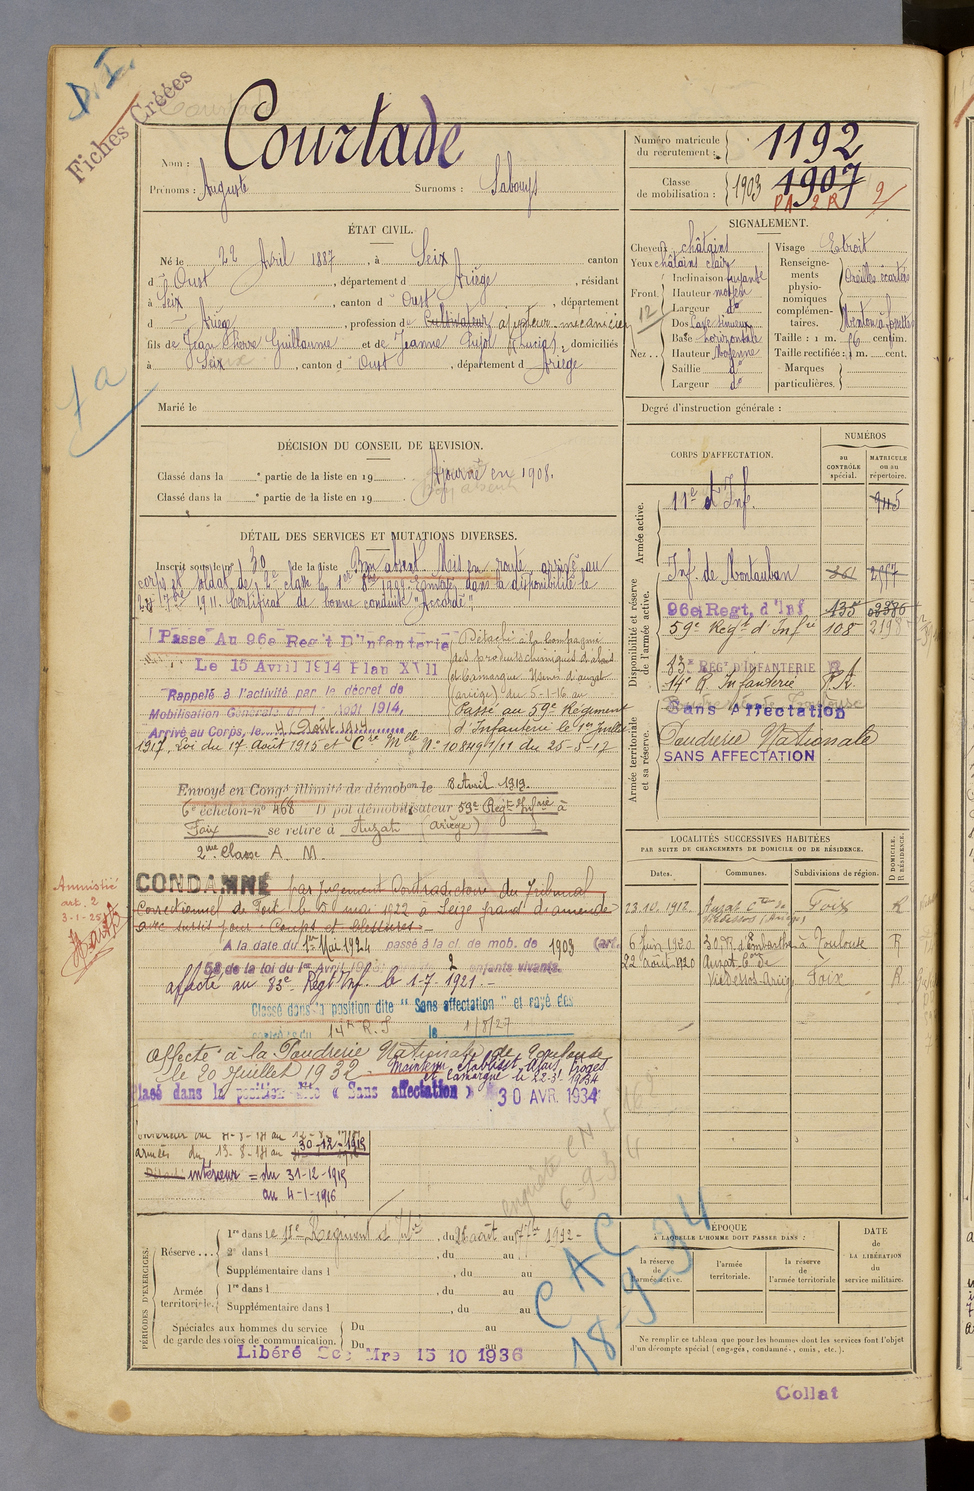 D.I.
Fiches Créées
Nom : Courtade
Prénoms : Auguste Surnoms : Sabouys
Numéro matricule du recrutement : 1192
Classe de mobilisation : 1903 1907
PA 2 R 2
ÉTAT CIVIL.
Né le 22 Avril 1887, à Seix canton
d'Oust, département d Ariège, résidant
à Seix, canton d Oust, département
d Ariège, profession de Cultivateur ajusteur-mécanicien
fils de Jean Pierre Guillaume et de Jeanne Pujol (Lucie), domiciliés
à Seix, canton d Oust, département d Ariège
Marié le
1a
SIGNALEMENT.
Cheveux châtains
Yeux châtain clair
Front. Inclinaison fuyante
Hauteur moyen
Largeur do
12
Nez... Dos Cave sinueux
Base horizontale
Hauteur Moyenne
Saillie do
Largeur do
Visage Etroit
Renseignements physionomiques complémentaires. Oreilles écartées
Menton à fossette
Taille : 1 m. 56 centim.
Taille rectifiée : 1 m. cent.
Marques particulières.
Degré d'instruction générale :
DÉCISION DU CONSEIL DE REVISION.
Classé dans la e partie de la liste en 19 . Ajourné en 1908.
Classé dans la e partie de la liste en 19 .
DÉTAIL DES SERVICES ET MUTATIONS DIVERSES.
Inscrit sous le no 30 de la liste Bon absent. Mis en route, arrivé au
corps et soldat de 2e classe le 1er 8bre 1909. Envoyé dans la disponibilité le
24 7bre 1911. Certificat de bonne conduite "Accordé"
Passé Au 96e Regt D'Infanterie
Le 15 Avril 1914 Plan XVII
Rappelé à l'activité par le décret de
Mobilisation Générale du 1 Août 1914,
Arrivé au Corps, le 4 Août 1914
Détaché à la Compagnie
des produits chimiques d'alais
et Camargue Usines d'auzat
(ariège) du 5-1-16 au
Passé au 59e Régiment
d'Infanterie le 1er Juillet
1917, Loi du 17 août 1915 et Cre Mlle No 10849 7/11 du 25-5-17
Envoyé en Congé illimité de démobon le 8 Avril 1919.
6e échelon-no 468 Dépôt démobilisateur 59e Régt Infrie à
Foix se retire à Auzat (Ariège)
2me Classe A. M.
CONDAMNÉ par jugement Contradictoire du Tribunal
Correctionnel de Foix le 5 mai 1922 à Seize francs d'amende
avec sursis pour "Coups et blessures"
Amnistié
art. 2
3-1-25
A la date du 1er Mai 1924 passé à la cl de mob. de 1903 (art.
58 de la loi du 1er Avril 1923: 2 enfants vivants.
affecté au 83e Régt Inf. le 1-7-1921.-
Classé dans la position dite "Sans affectation" et rayé des
14e R.I le 1/8/27
Affecté à la Poudrerie Nationale de Toulouse
le 20 Juillet 1932. Maintenu
et Camargue le 22-3-1934
Classé dans la position dite « Sans affectation » 30 AVR. 1934
armées du 13-8-14 au 30-12-1915
intérieur = du 31-12-1915
au 4-1-1916
enquête CN
6-9-34
CAC
18-9-34
CORPS D'AFFECTATION.
NUMÉROS
au CONTRÔLE spécial.
MATRICULE ou au répertoire.
Armée active.
11e d'Inf. 9115
Disponibilité et réserve de l'armée active.
Inf. de Montauban
96e Regt. d'Inf 435
59e Régt d'Infie 108
83e REGt D'INFANTERIE
14e R. Infanterie
Sans Affectation
Armée territoriale et sa réserve.
Poudrerie Nationale
SANS AFFECTATION
LOCALITÉS SUCCESSIVES HABITÉES
PAR SUITE DE CHANGEMENTS DE DOMICILE OU DE RÉSIDENCE.
Dates. Communes. Subdivisions de région. D DOMICILE. R RÉSIDENCE.
23.10.1912. Auzat Cton de Vicdessos (Ariège) Foix R
6 Juin 1920 30, R. d'Embarthe à Toulouse R
22 août 1920 Auzat Con de Vicdessos Ariège Foix R.
PÉRIODES D'EXERCICES.
Réserve... 1re dans le 11e Régiment d'Infie, du 26 août au 7bre 1912-
2e dans l , du au
Supplémentaire dans l , du au
Armée territoriale. 1re dans l , du au
Supplémentaire dans l , du au
Spéciales aux hommes du service de garde des voies de communication. Du au
Du au
Libéré Sce Mre 15 10 1936
ÉPOQUE
À LAQUELLE L'HOMME DOIT PASSER DANS :
la réserve de l'armée active.
l'armée territoriale.
la réserve de l'armée territoriale
DATE de LA LIBÉRATION du service militaire.
Ne remplir ce tableau que pour les hommes dont les services font l'objet
d'un décompte spécial (engagés, condamnés, omis, etc.).
Collat